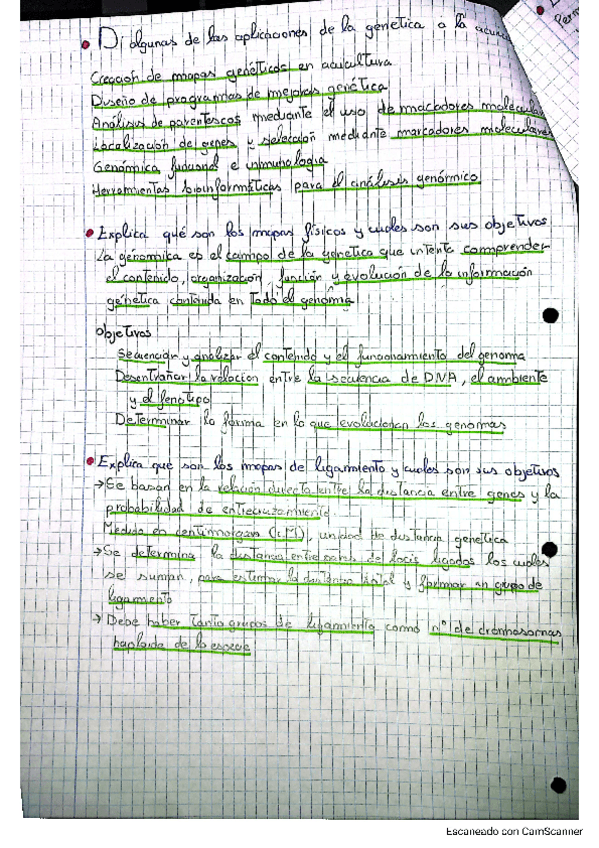 Di algunas de las aplicaciones de la genetica a la
Creación de mapas genéticos en acuicultura
Diseño de programas de mejora genética
Análisis de parentescos mediante el uso de marcadores moleculares
Localización de genes y selección mediante marcadores moleculares
Genómica funcional e inmunologia
Herramientas bioinformáticas para el análisis genómico
Explica qué son los mapas físicos y cuales son sus objetivos
La genomica es el campo de la genetica que intenta comprender
el contenido, organización, función y evolución de la información
genética contenida en todo el genoma
Objetivos
Secuenciar y analizar el contenido y el funcionamiento del genoma
Desentrañar la relacion entre la secuencia de DNA, el ambiente
y el fenotipo
Determinar la forma en la que evolucionan los genomas
Explica qué son los mapas de ligamiento y cuales son sus objetivos
→ Se basan en la relación directa entre la distancia entre genes y la
probabilidad de entrecruzamiento.
Medida en centimorgans (cM), unidad de distancia genética
→ Se determina la distancia entre pares de locis ligados los cuales
se suman, para estimar la distancia total y formar un grupo de
ligamiento
→ Debe haber tanto grupos de ligamiento como nº de cromosomas
haploide de la especie
Escaneado con CamScanner